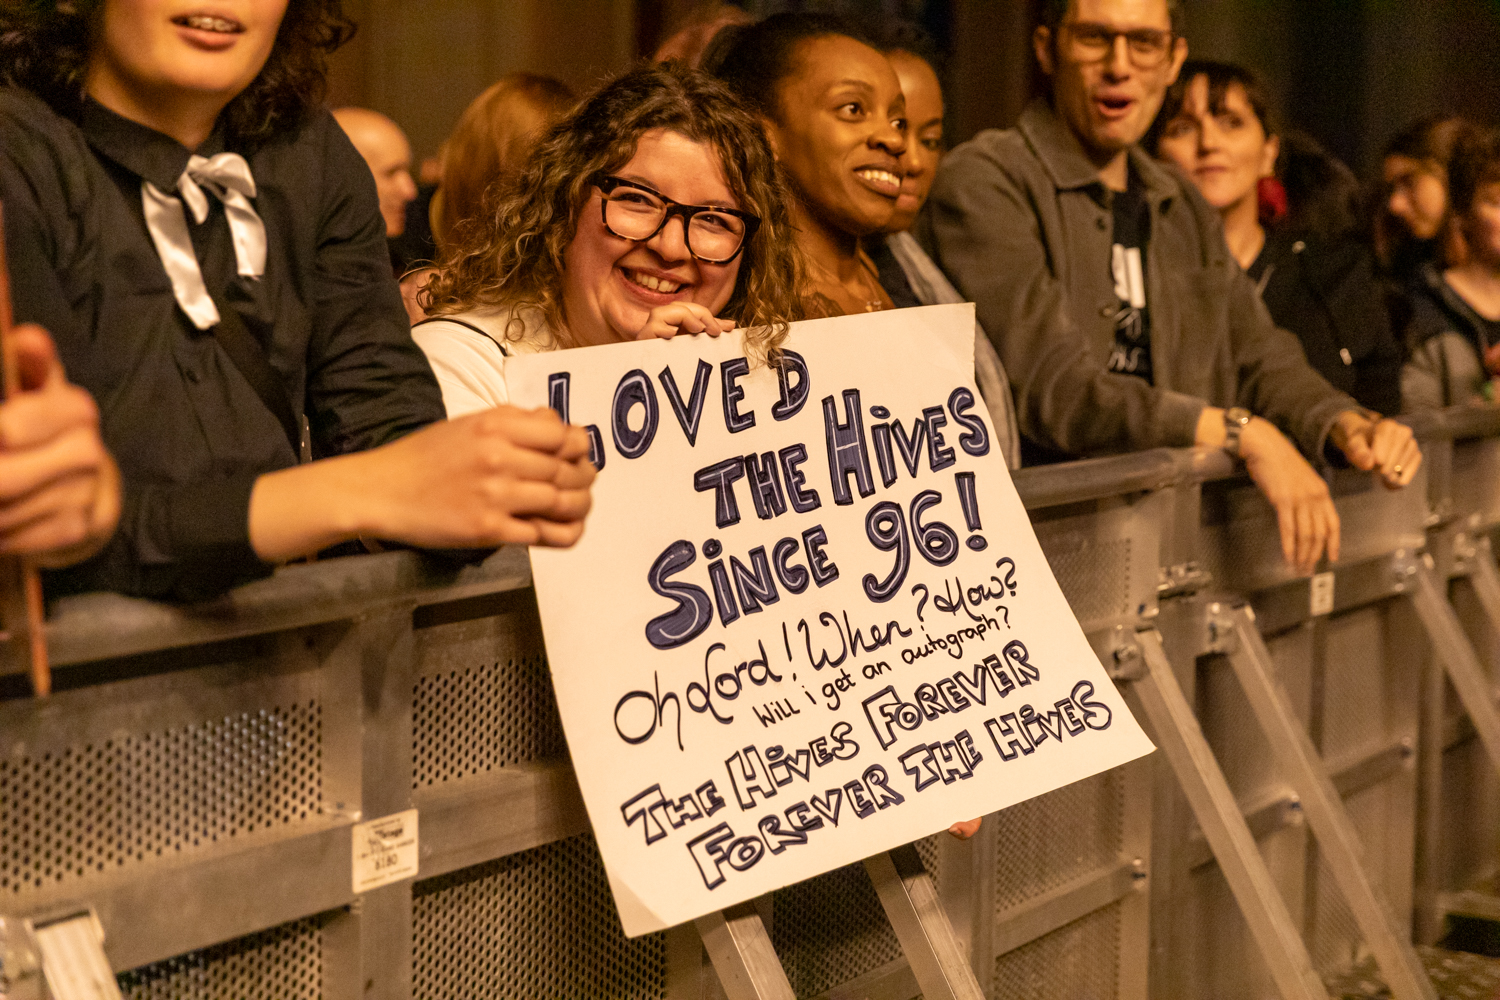 LOVED
THE HiVES
SiNCE 96!
Oh Lord! When? How?
Will i get an autograph?
THE HiVES FOREVER
FOREVER THE HiVES
6180